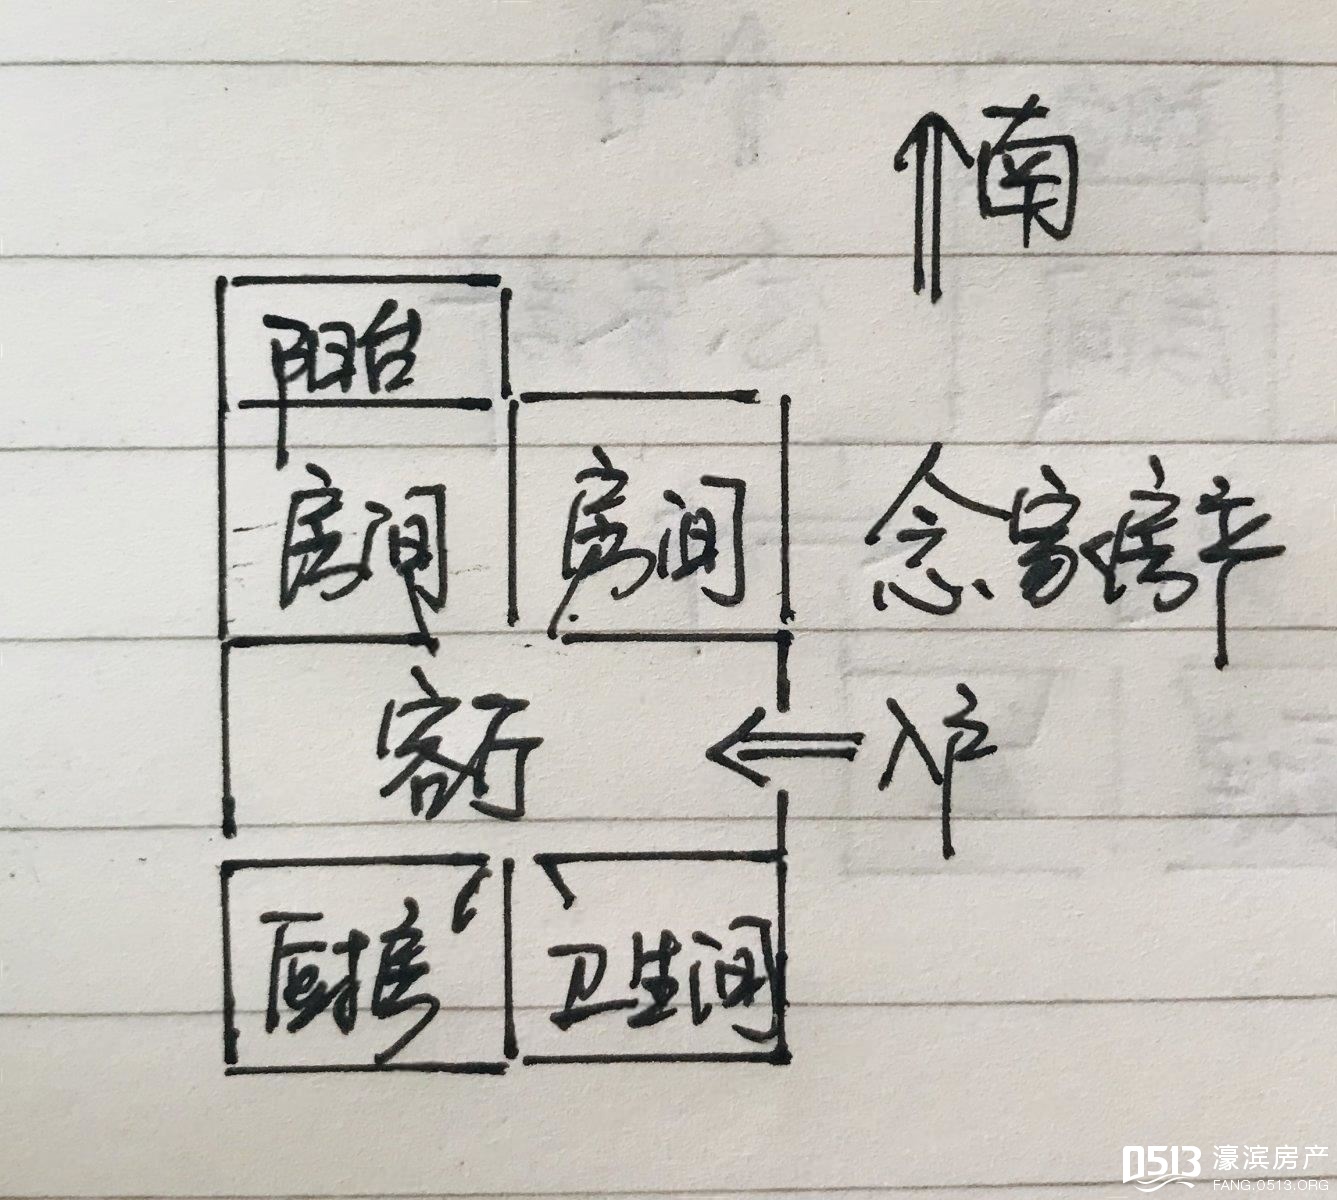 南
阳台
房间 房间
念家房产
客厅
入户
厨房 卫生间
0513 濠滨房产
FANG.0513.ORG